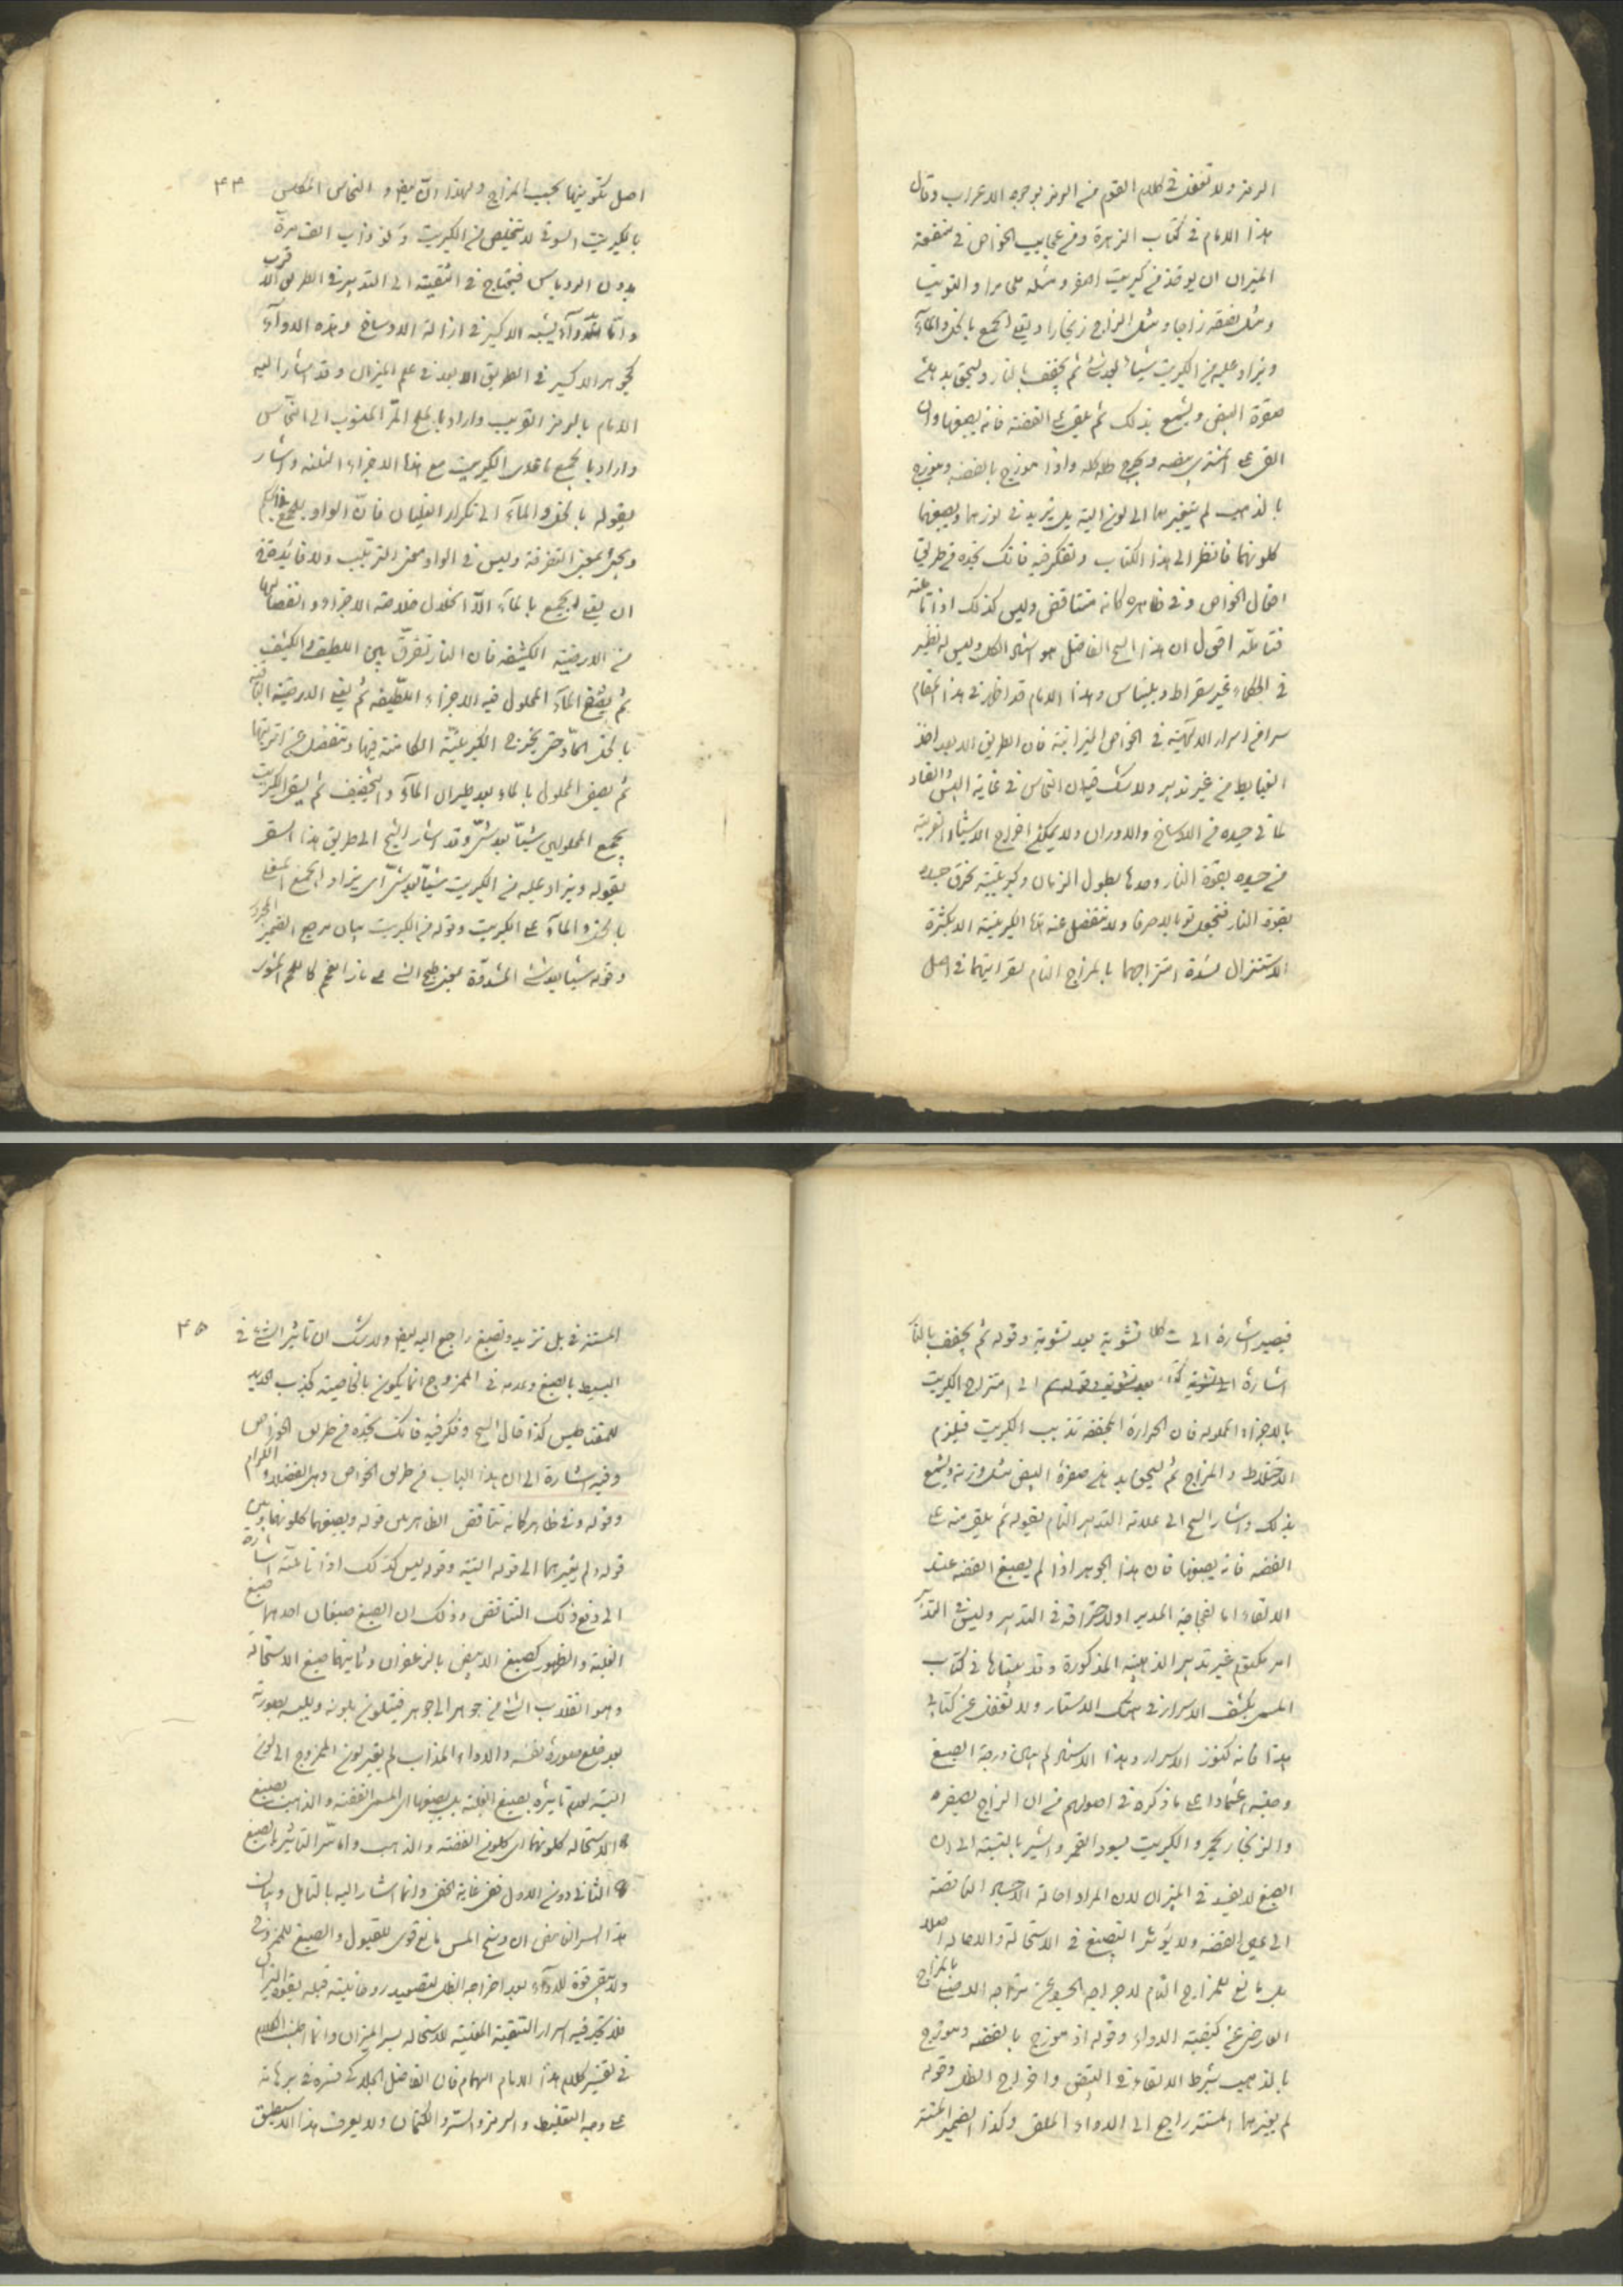 الرمز ولا تغفل في كلام القوم من الرمز بوجوه الاعراب وقال
هذا الامام في كتاب الزهرة ومن عجايب الخواص في منفعة
الميزان ان يوخذ من كبريت اصفر ومثله ملح مرا و التوتيا
ومثل نصفه زاجا ومثل الزاج زنجارا ويقلي الجمع بالخل والمآء
ويزاد عليه من الكبريت شيئا بعد شئ ثم يجفف بالنار ويسحق بدهن
صفرة البيض ويشمع بذلك ثم يلقى على الفضة فانه يصبغها وان
القي على المشتري وخرج ظله كله واذا موزج بالفضة وموزج
بالذهب لم يتغير بهما الى لون البتة بل تزيد في لونهما ويصبغهما
كلونهما فانظر الى هذا الكتاب وتفكر فيه فانك تجده من طريق
افعال الخواص وفي ظاهره كانه متناقض وليس كذلك اذا تاملته
فتامله اقول ان هذا الشيخ الفاضل هو استاد الكل وليس له نظير
في الحكماء غير سقراط وبليناس وهذا الامام قد اظهر في هذا المقام
سرا من اسرار الالهية في الخواص الميزانية فان الطريق الابعد اخذ
من غير تدبير ولا شك ان النحاس في غاية اليبس والفساد
لما في جسده من الاوساخ والادران ولا يمكن اخراج الاشياء الغريبة
من جسده بقوة النار وحدها بطول الزمان وكبريتية تحرق جسده
بقوة النار فتجعل توبالا صرفا ولا تنفصل عنه هذه الكبريتية الا بكثرة
الاستنزال لشدة امتزاجها بالمزاج التام لقرابتهما في اصل
۴۴
اصل تكوينهما بحسب المزاج ولهذا النحاس المكلس
بالكبريت لا يتخلص من الكبريت ولو ذاب الف مرة
بدون الروباس فيحتاج في التنقية الى التدبير في الطريق الاقرب
واما الدوآء يشبه الاكسير في ازالة الاوساخ وهذه الدوآء
كجوهر الاكسير في الطريق الابعد في علم الميزان وقد اشار اليه
الامام بالرمز القريب واراد بالملح المر المنسوب الى النحاس
واراد بالجمع ما عدا الكبريت مع هذا الاجزاء الثلثة واشار
بقوله بالخل والمآء الى تكرار الغليان فان الواو للجمع
ويجئ بمعنى التفرقة وليس في الواو معنى الترتيب ولا فايدة في
ان يقلي الجمع بالمآء الا انحلال خلاصة الاجزاء وانفصالها
من الارضية الكثيفة فان النار تفرق بين اللطيف والكثيف
ثم المآء المحلول فيه الاجزاء اللطيفة ثم يقلي الارضية الباقية
بالخل الحاد حتى يخرج الكبريتية الكامنة فيها وتنفصل عن
ثم يصفى المحلول بالماء بعد طيران المآء والتجفيف ثم يلقى الكبريت
بجمع المحلولين شيئا بعد شئ وقد اشار الشيخ الى طريق هذا السر
بقوله ويزاد عليه من الكبريت شيئا بعد شئ اي يزاد الجمع المقلي
بالخل والمآء على الكبريت وقوله من الكبريت بيان مرجع الضمير المجرور
وقوله شيئا بعد شئ المشدودة بمعنى طبخ الشئ على نار الفحم كاللحم المشوي
فيصير اشارة الى تشوية بعد تشوية وقوله ثم يجفف بالنار
اشارة الى امتزاج الكبريت
بالاجزاء المحلولة فان الحرارة المجففة تذيب الكبريت فيلزم
الاختلاط والمزاج ثم يسحق بدهن صفرة البيض مثل وزنه ويشمع
بذلك واشار الشيخ الى علامة التدبير التام بقوله ثم يلقى منه على
الفضة فانه يصبغها فان هذا الجوهر اذا لم يصبغ الفضة عند
الالقاء اما لفجاجة المدبر او لاحتراقه في التدبير وليس في التدبير
امر مكتوم غير تدبير الذهبية المذكورة وقد بيناها في كتاب
المسمى بكشف الاسرار في هتك الاستار ولا تغفل عن كتابي
هذا فانه كنوز الاسرار وهذا الاستاد لم يبين درجة الصبغ
وصفته اعتمادا على ما ذكره في اصولهم من ان الزاج يصفره
والزنجار يحمر والكبريت يسود القمر واشير بالتنبيه الى ان
الصبغ لا يفيد في الميزان لان المراد احالة الاجساد الناقصة
الى عين الفضة ولا يؤثر التصبغ في الاستحالة والاحالة اصلا
بل مانع للمزاج التام لاخراجه الجسد عن مزاجه الاصلي بالمزاج
العارض عن كيفية الدواء وقوله اذا موزج بالفضة وموزج
بالذهب بشرط الالقاء في البيض واخراج الظل وقوله
لم يغيرهما المستتر راجع الى الدواء الملقى وكذا الضمير المستتر
۴۵
المستتر في بل تزيد وتصبغ راجع اليه ايضا ولا شك ان تاثير الشئ في
البسيط بالصبغ وعدمه في الممزوج انما يكون بالخاصية كجذب الحديد
للمقناطيس كذا قال الشيخ وفكر فيه فانك تجده من طريق الخواص
وفيه اشارة الى ان هذا الباب من طريق الخواص وهي الفضلاء الكرام
وقوله وفي ظاهره كانه متناقض الظاهر بين قوله ويصبغهما كلونهما وبين
قوله ولم يغيرهما الى قوله البتة وقوله ليس كذلك اذا تاملته اشارة
الى دفع ذلك التناقض وذلك ان الصبغ صبغان احدهما صبغ
الغلبة والظهور كصبغ الابيض بالزعفران وثانيهما صبغ الاستحالة
وهو انقلاب الشئ من جوهر الى جوهر فيتلون بلونه ويلبسه بصورته
بعد خلع صورة نفسه والدواء المذاب لم يغير لون الممزوج الى لون
البتة لعدم تاثيره بصبغ الغلبة بل يصبغهما اي المس الفضة والذهب بصبغ
الاستحالة كلونهما اي كلون الفضة والذهب واما سر التاثير بالصبغ
الثاني دون الاول ففي غاية الخفى وانما اشار اليه بالتامل وبيان
هذا السر الغامض ان وسخ المس مانع قوي للقبول والصبغ للممزوج
ولا يبقى قوة للدوآء بعد اخراجه الظل لتصعيد روحانيته قبله بقوة النيران
فلا تجد فيه اسرار التنقية المغنية للاستحالة بسر الميزان وانما اطنبت الكلام
في تفسير كلام هذا الامام الهمام فان الفاضل الجلدكي فسره في برهانه
على وجه التغليط والرمز والستر والكتمان ولا يعرف هذا